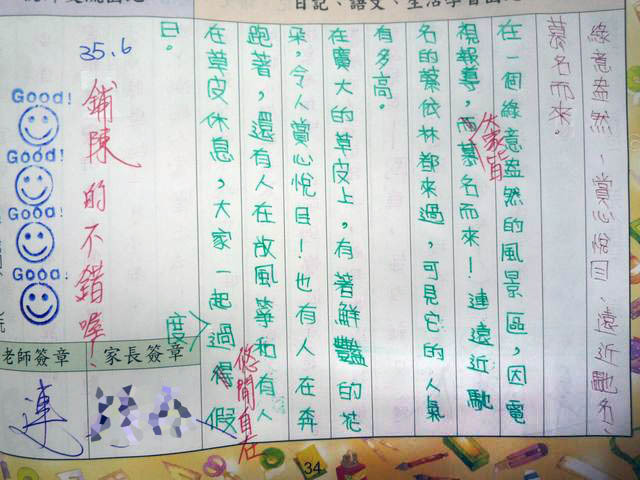 日記、語文、生活學習
綠意盎然、賞心悅目、遠近馳名、
慕名而來。
在一個綠意盎然的風景區,因電
視報導,而慕名而來!連遠近馳
大家皆
名的蔡依林都來過,可見它的人氣
有多高。
在廣大的草皮上,有著鮮豔的花
朵,令人賞心悅目!也有人在奔
跑著,還有人在放風箏和有人
在草皮休息,大家一起過得假
悠閒自在
度
日。
35.6
鋪陳的不錯喔!
Good!
Good!
Good!
Good!
家長簽章
老師簽章
連
34